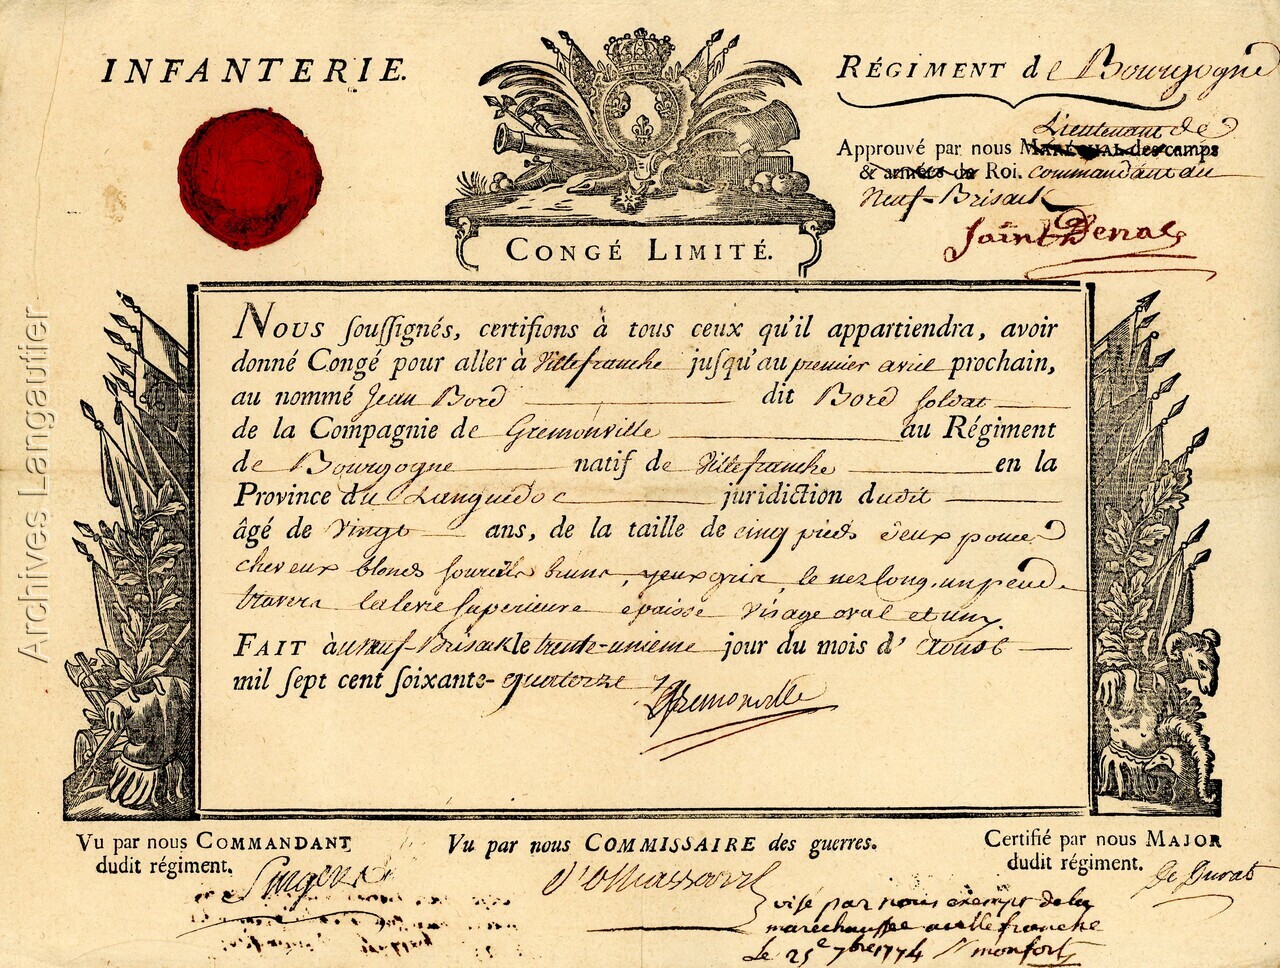 INFANTERIE.
RÉGIMENT de Bourgogne
Lieutenant de
Approuvé par nous MARÉCHAL des camps
& armées du Roi. commandant au
Neuf-Brisack
CONGÉ LIMITÉ.
NOUS soussignés, certifions à tous ceux qu'il appartiendra, avoir
donné Congé pour aller à Villefranche jusqu'au premier avril prochain,
au nommé Jean Bord dit Bord soldat
de la Compagnie de Gremonville au Régiment
de Bourgogne natif de Villefranche en la
Province du Languedoc juridiction dudit
âgé de vingt ans, de la taille de cinq pieds deux pouces
cheveux blonds sourcils bruns, yeux gris, le nez long, un peu de
travers la levre superieure epaisse visage oval et uny.
FAIT à neuf-Brisack le trente-unieme jour du mois d'Aoust
mil sept cent soixante-quatorze Gremonville
Vu par nous COMMANDANT
dudit régiment.
Vu par nous COMMISSAIRE des guerres.
Certifié par nous MAJOR
dudit régiment.
De Durat
visé par nous exempt de la
marechaussée a villefranche
Le 25e 7bre 1774 monfort
Archives Langautier